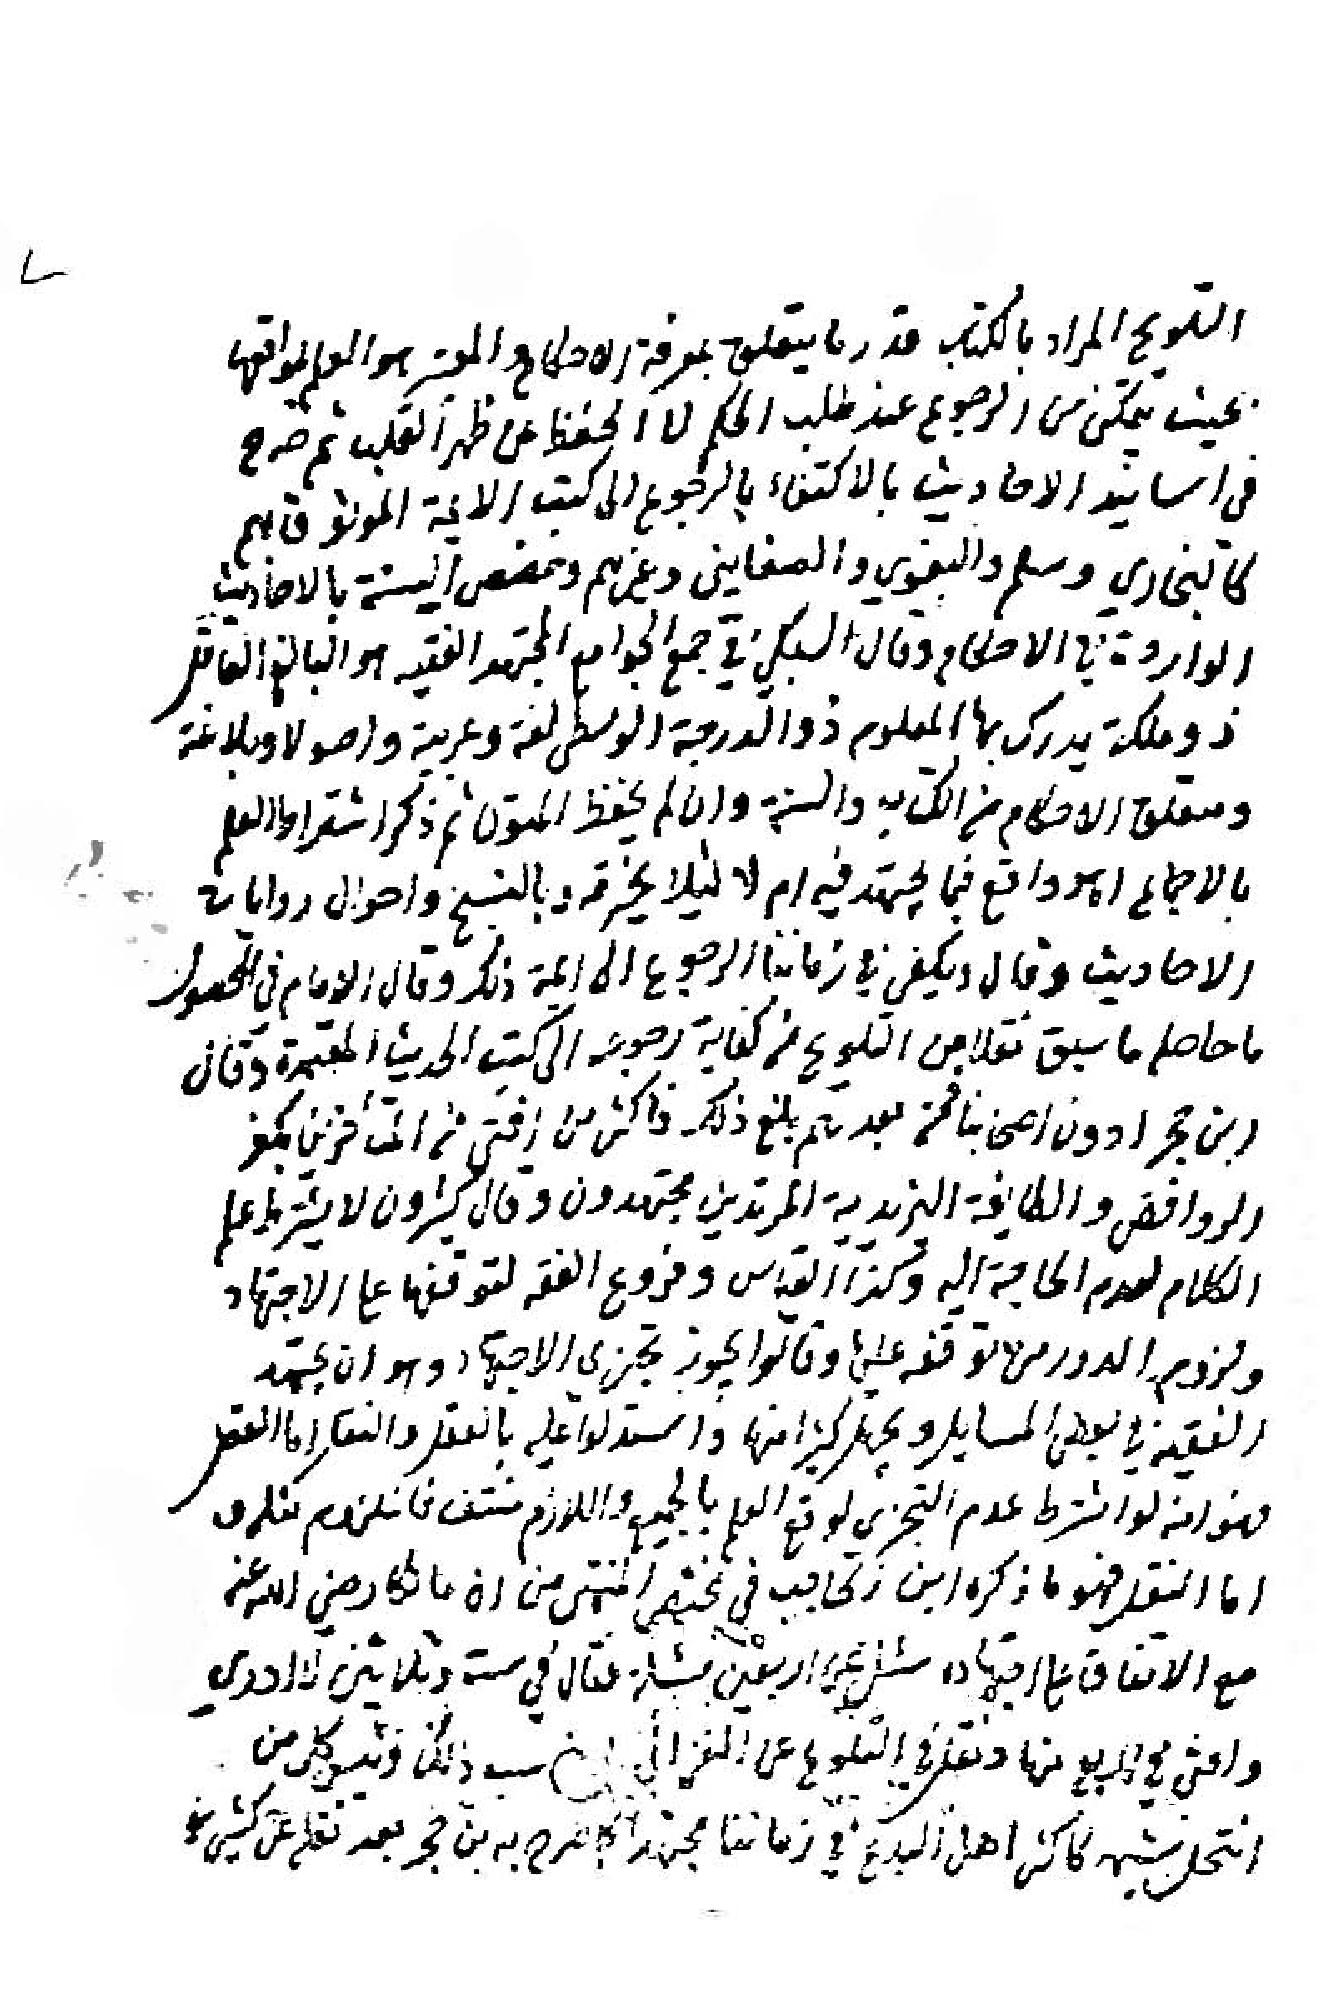 التلويح المراد بالكتاب قدر ما يتعلق بمعرفة الاحكام والمعتبر هو العلم بمواقعها
بحيث يتمكن من الرجوع عند طلب الحكم لا الحفظ عن ظهر القلب ثم صرح
في اسانيد الاحاديث بالاكتفاء بالرجوع الى كتب الائمة الموثوق بهم
كالبخاري ومسلم والبغوي والصغايني وغيرهم وتخصص السنة بالاحاديث
الواردة في الاحكام وقال السبكي في جمع الجوامع المجتهد الفقيه هو البالغ العاقل
ذو ملكة يدرك بها المعلوم ذو الدرجة الوسطى لغة وعربية واصولا وبلاغة
ومتعلق الاحكام من الكتاب والسنة وان لم يحفظ المتون ثم ذكر اشتراط العلم
بالاجماع اهو واقع فيما يجتهد فيه ام لا ليلا يخرقه وبالنسخ واحوال روايات
الاحاديث وقال ويكفي في زماننا الرجوع الى ايمة ذلك وقال الامام في المحصول
ما حاصله ما سبق نقلا من التلويح من كفاية رجوعه الى كتب الحديث المعتبرة وقال
ابن حجر ادون اصحابنا ثمة بعدهم بلغ ذلك فاكثر من افتى من المتأخرين بكفر
الروافض والطايفة اليزيدية المرتدين مجتهدون وقال كثيرون لا يشترط علم
الكلام لعدم الحاجة اليه وكذا القياس وفروع الفقه لتوقفها على الاجتهاد
ولزوم الدور من توقفه عليها وقالوا يجوز تجزي الاجتهاد وهو ان يجتهد
الفقيه في بعض المسايل ويجهل كثيرا منها واستدلوا عليه بالعقل والنقل اما العقل
فهو انه لو اشترط عدم التجزي لوقع العلم بالجميع واللازم منتف فالملزوم مثله و
اما النقل فهو ما ذكره ابن الحاجب في مختصر المنتهى من ان مالكا رضي الله عنه
مع الاتفاق على اجتهاده سئل عن اربعين مسئلة فقال في ست وثلاثين لا ادري
وافتى في اربع منها ونقل في التلويح عن الغزالي سبب ذلك فليس كل من
انتحل كاكثر اهل البدع في زماننا مجتهدا كما صرح به بن حجر بعد نقله عن كثيرين